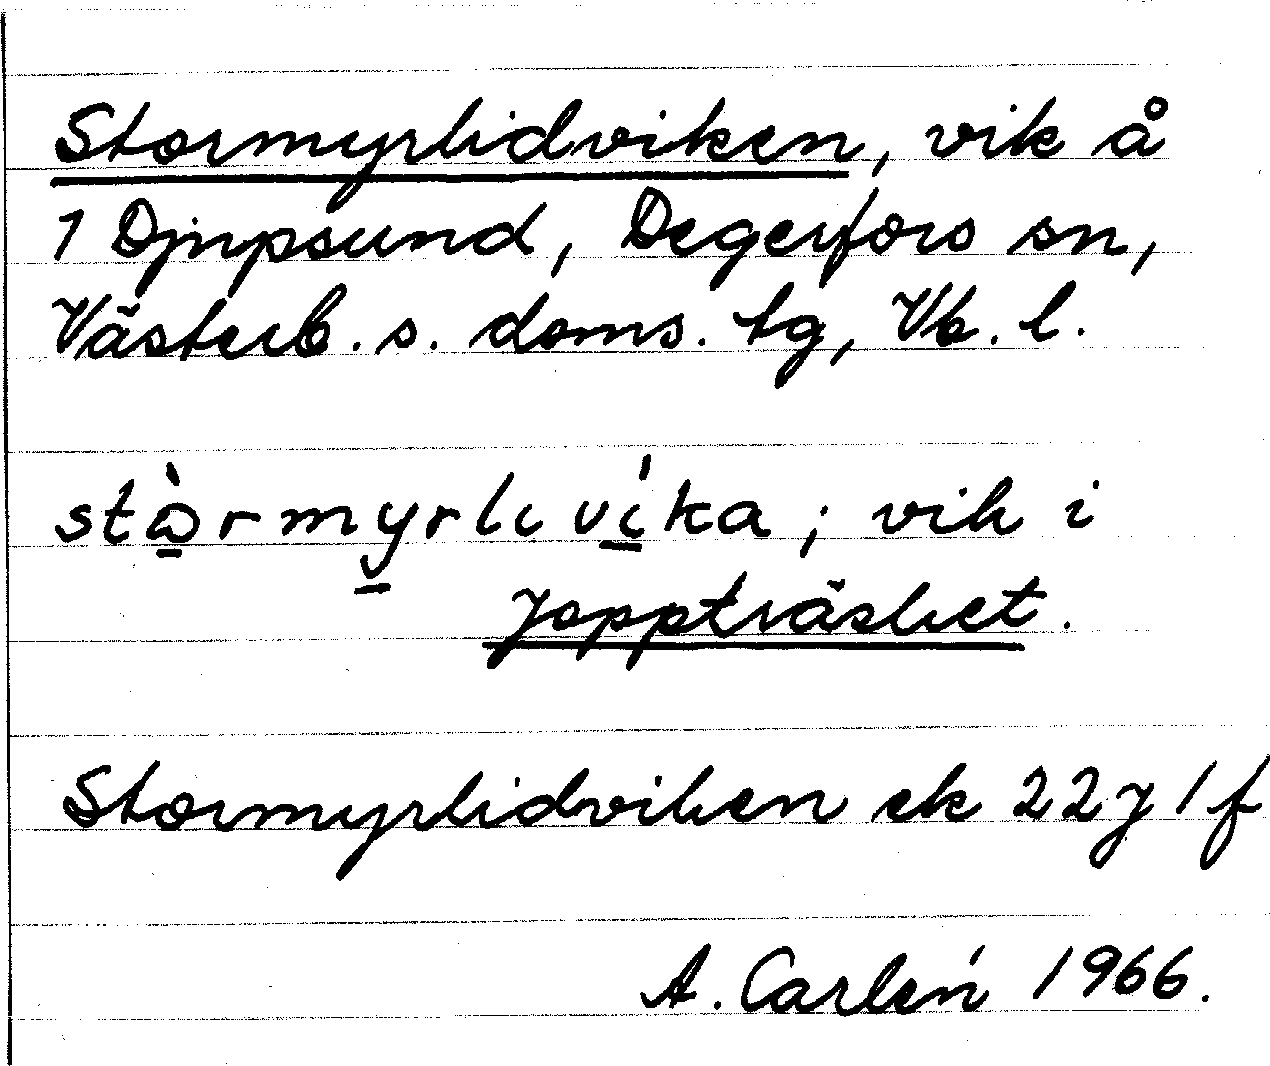 Stormyrlidviken, vik å
1 Djupsund, Degerfors sn,
Västerb. s. doms. tg, Vb. l.
stòrmyrlı víka; vik i
Joppträsket.
Stormyrlidviken ek 22J1f
A. Carlén 1966.